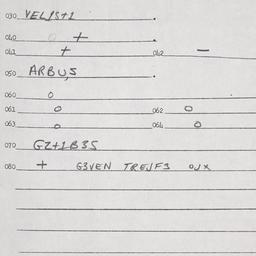 030 VELJS+1 .
040 O + .
041 + 042 –
050 ARBU,S .
060 O
061 O 062 O
063 O 064 O
070 GZ+1B3S
080 + G3VEN TREJF3 OJX